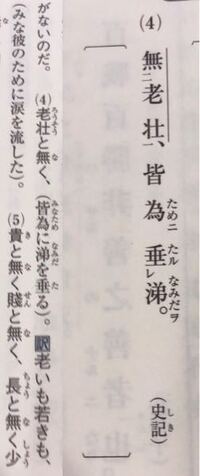 (4) 無二老壮一、皆為ためニ垂タルレ涕なみだヲ。 (史記しき)
がないのだ。 (4)老壮ろうそうと無なく、(皆為みなために涕なみだを垂たる)。訳老いも若きも、
(みな彼のために涙を流した)。 (5)貴きと無なく賤せんと無なく、長ちょうと無なく少しょう